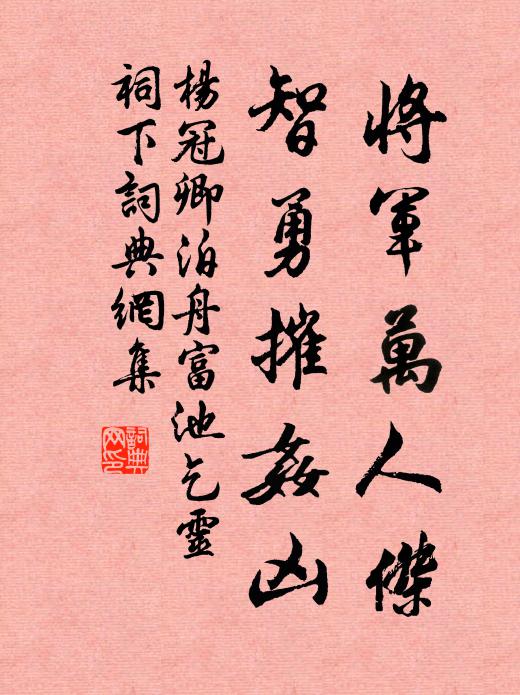 將軍萬人傑
智勇摧姦凶
楊冠卿泊舟富池乞靈
祠下詞典網集
詞典網印